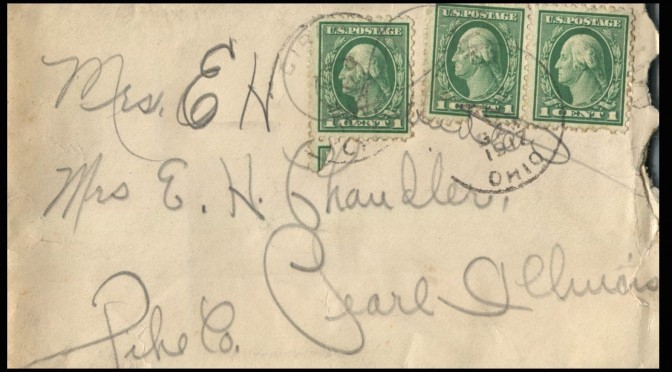 U.S. POSTAGE
1 CENT 1
U.S. POSTAGE
1 CENT 1
U.S. POSTAGE
1 CENT 1
OHIO
Mrs. E H
Mrs E. H. Chandler,
Pearl Illinois
Pike Co.